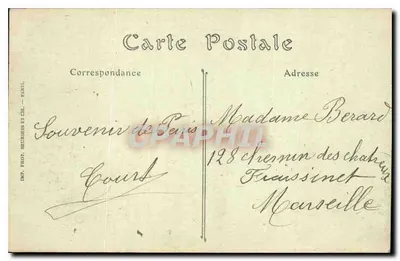 Carte Postale
Correspondance
Adresse
IMP. PHOT. NEURDEIN ET CIE. — PARIS.
Souvenir de Paris
Court
Madame Berard
128 chemin des chatreux
Fraissinet
Marseille
CPARHPI